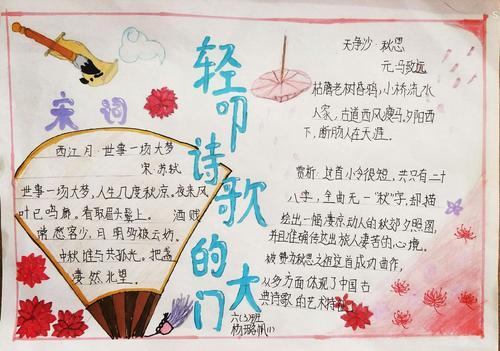 轻叩诗歌的大门
宋词
西江月·世事一场大梦
宋·苏轼
世事一场大梦,人生几度秋凉。夜来风
叶已鸣廊。看取眉头鬓上。 酒贱
常愁客少,月明多被云妨。
中秋谁与共孤光。把盏
凄然北望。
天净沙·秋思
元·马致远
枯藤老树昏鸦,小桥流水
人家,古道西风瘦马。夕阳西
下,断肠人在天涯。
赏析:这首小令很短,共只有二十
八字,全曲无一"秋"字,却描
绘出一幅凄凉动人的秋郊夕照图,
并且准确传达出旅人凄苦的心境。
被赞为秋思之祖这首成功曲作,
从多方面体现了中国古
典诗歌的艺术特征。
六(3)班